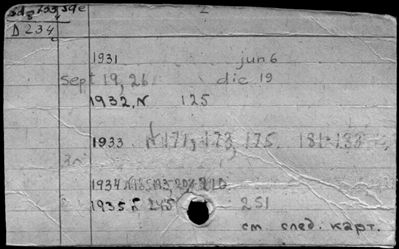 D 234
1931 jun 6
Sept 19, 26 dic 19
1932, N 125
1933 N 171, 173, 175. 181-188
1934 N 185, 193, 208 210
1935 № 245 251
см. след. карт.